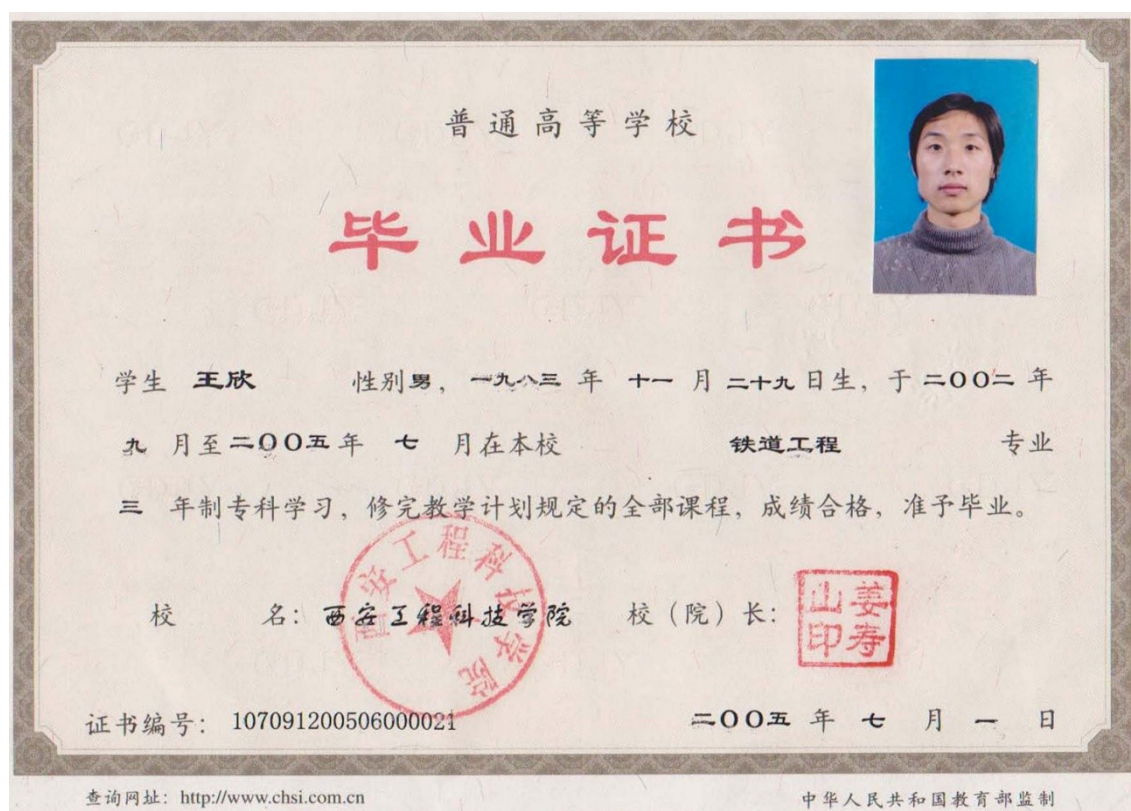 普通高等学校
毕业证书
学生 王欣 性别男，一九八三 年 十一 月 二十九 日生，于 二〇〇二 年
九 月至 二〇〇五 年 七 月在本校 铁道工程 专业
三 年制专科学习，修完教学计划规定的全部课程，成绩合格，准予毕业。
校 名：西安工程科技学院 校（院）长：
西安工程科技学院
姜寿山印
证书编号：107091200506000021 二〇〇五 年 七 月 一 日
查询网址：http://www.chsi.com.cn 中华人民共和国教育部监制